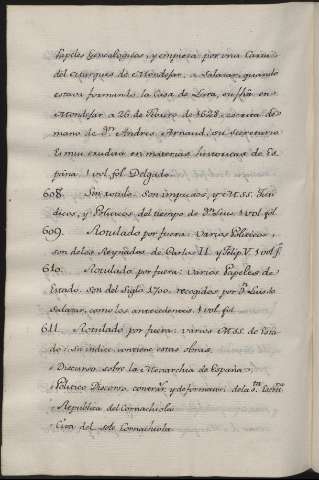 Papeles Genealogicos, y empieza por una Carta
del Marques de Mondejar, a Salazar, quando
estava formando la Casa de Lara, su fha en
Mondejar a 26 de Febrero de 1688. escrita de
mano de Dn. Andres Arnaud, su secretario
Es mui erudita en materias historicas de Es-
paña. 1 vol. fol. Delgado.
608. Sin rotulo. Son impresos, y M.SS. Juri-
dicos, y Politicos del tiempo de Dn. Luis. 1 vol. fol.
609. Rotulado por fuera: Varios Politicos:
son de los Reynados de Carlos II y Felip. V. 1 vol. f.
610. Rotulado por fuera: varios Papeles de
Estado. son del Siglo 1700. recogidos por Dn. Luis de
Salazar, como los antecedentes. 1 vol. fol.
611. Rotulado por fuera: varios M.SS. de Esta-
do: su indice contiene estas obras.
Discurso sobre la Monarchia de España.
Politico Discurso de la
Republica del Cornachiola
del sote Cornachiola